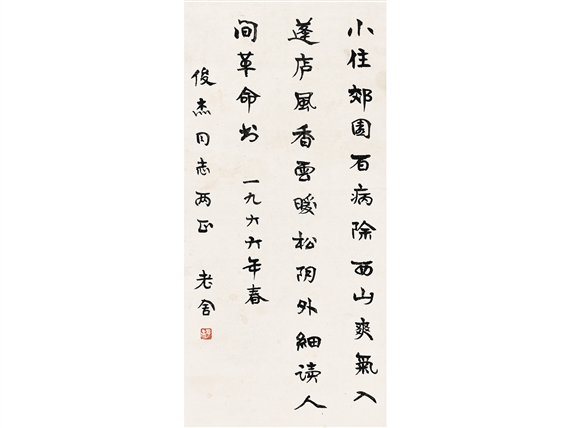 小住郊園百病除西山爽氣入
蓬庐風香雲暖松阴外細读人
间革命书 一九六六年春
俊杰同志两正 老舍